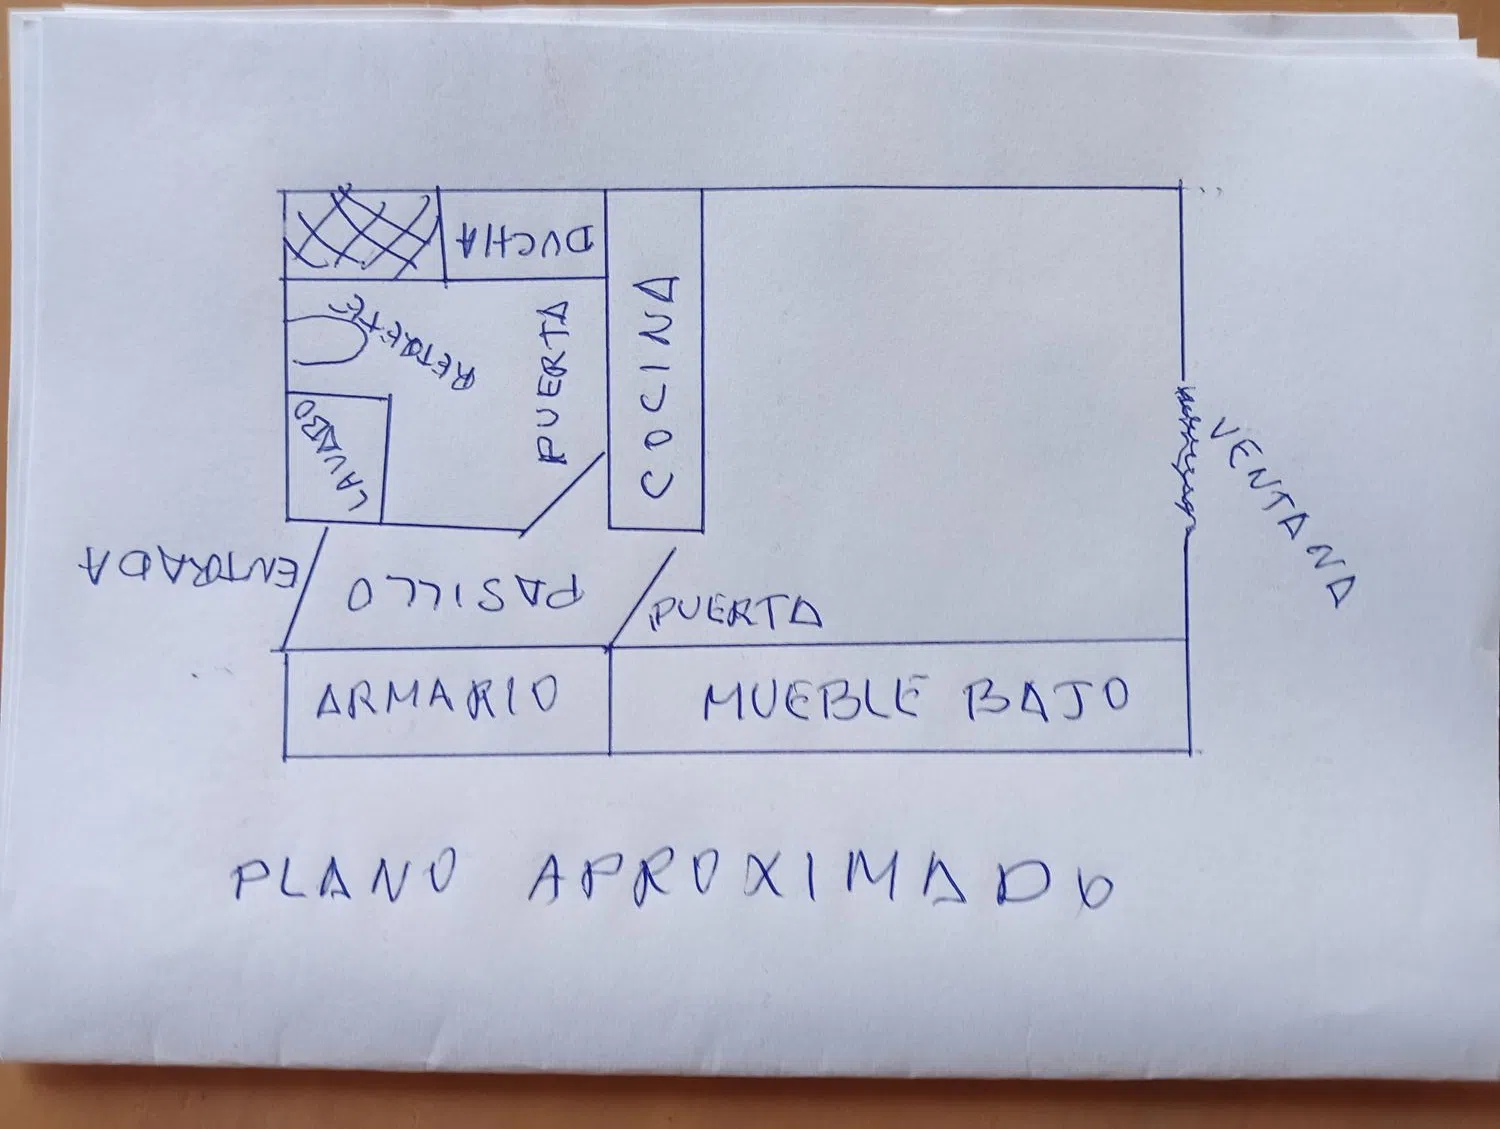 DUCHA
RETRETE
PUERTA
COCINA
LAVABO
VENTANA
ENTRADA
PASILLO
PUERTA
ARMARIO
MUEBLE BAJO
PLANO APROXIMADO